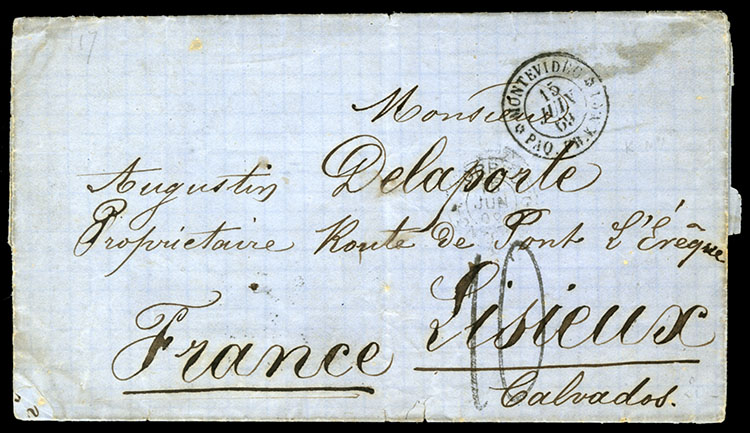 17
MONTEVIDEO
15
JUIN
69
PAQ. FR. K
Monsieur
Augustin Delaporte
JUN
Propriétaire Route de Pont L'Évêque
10
Lisieux
France
Calvados.